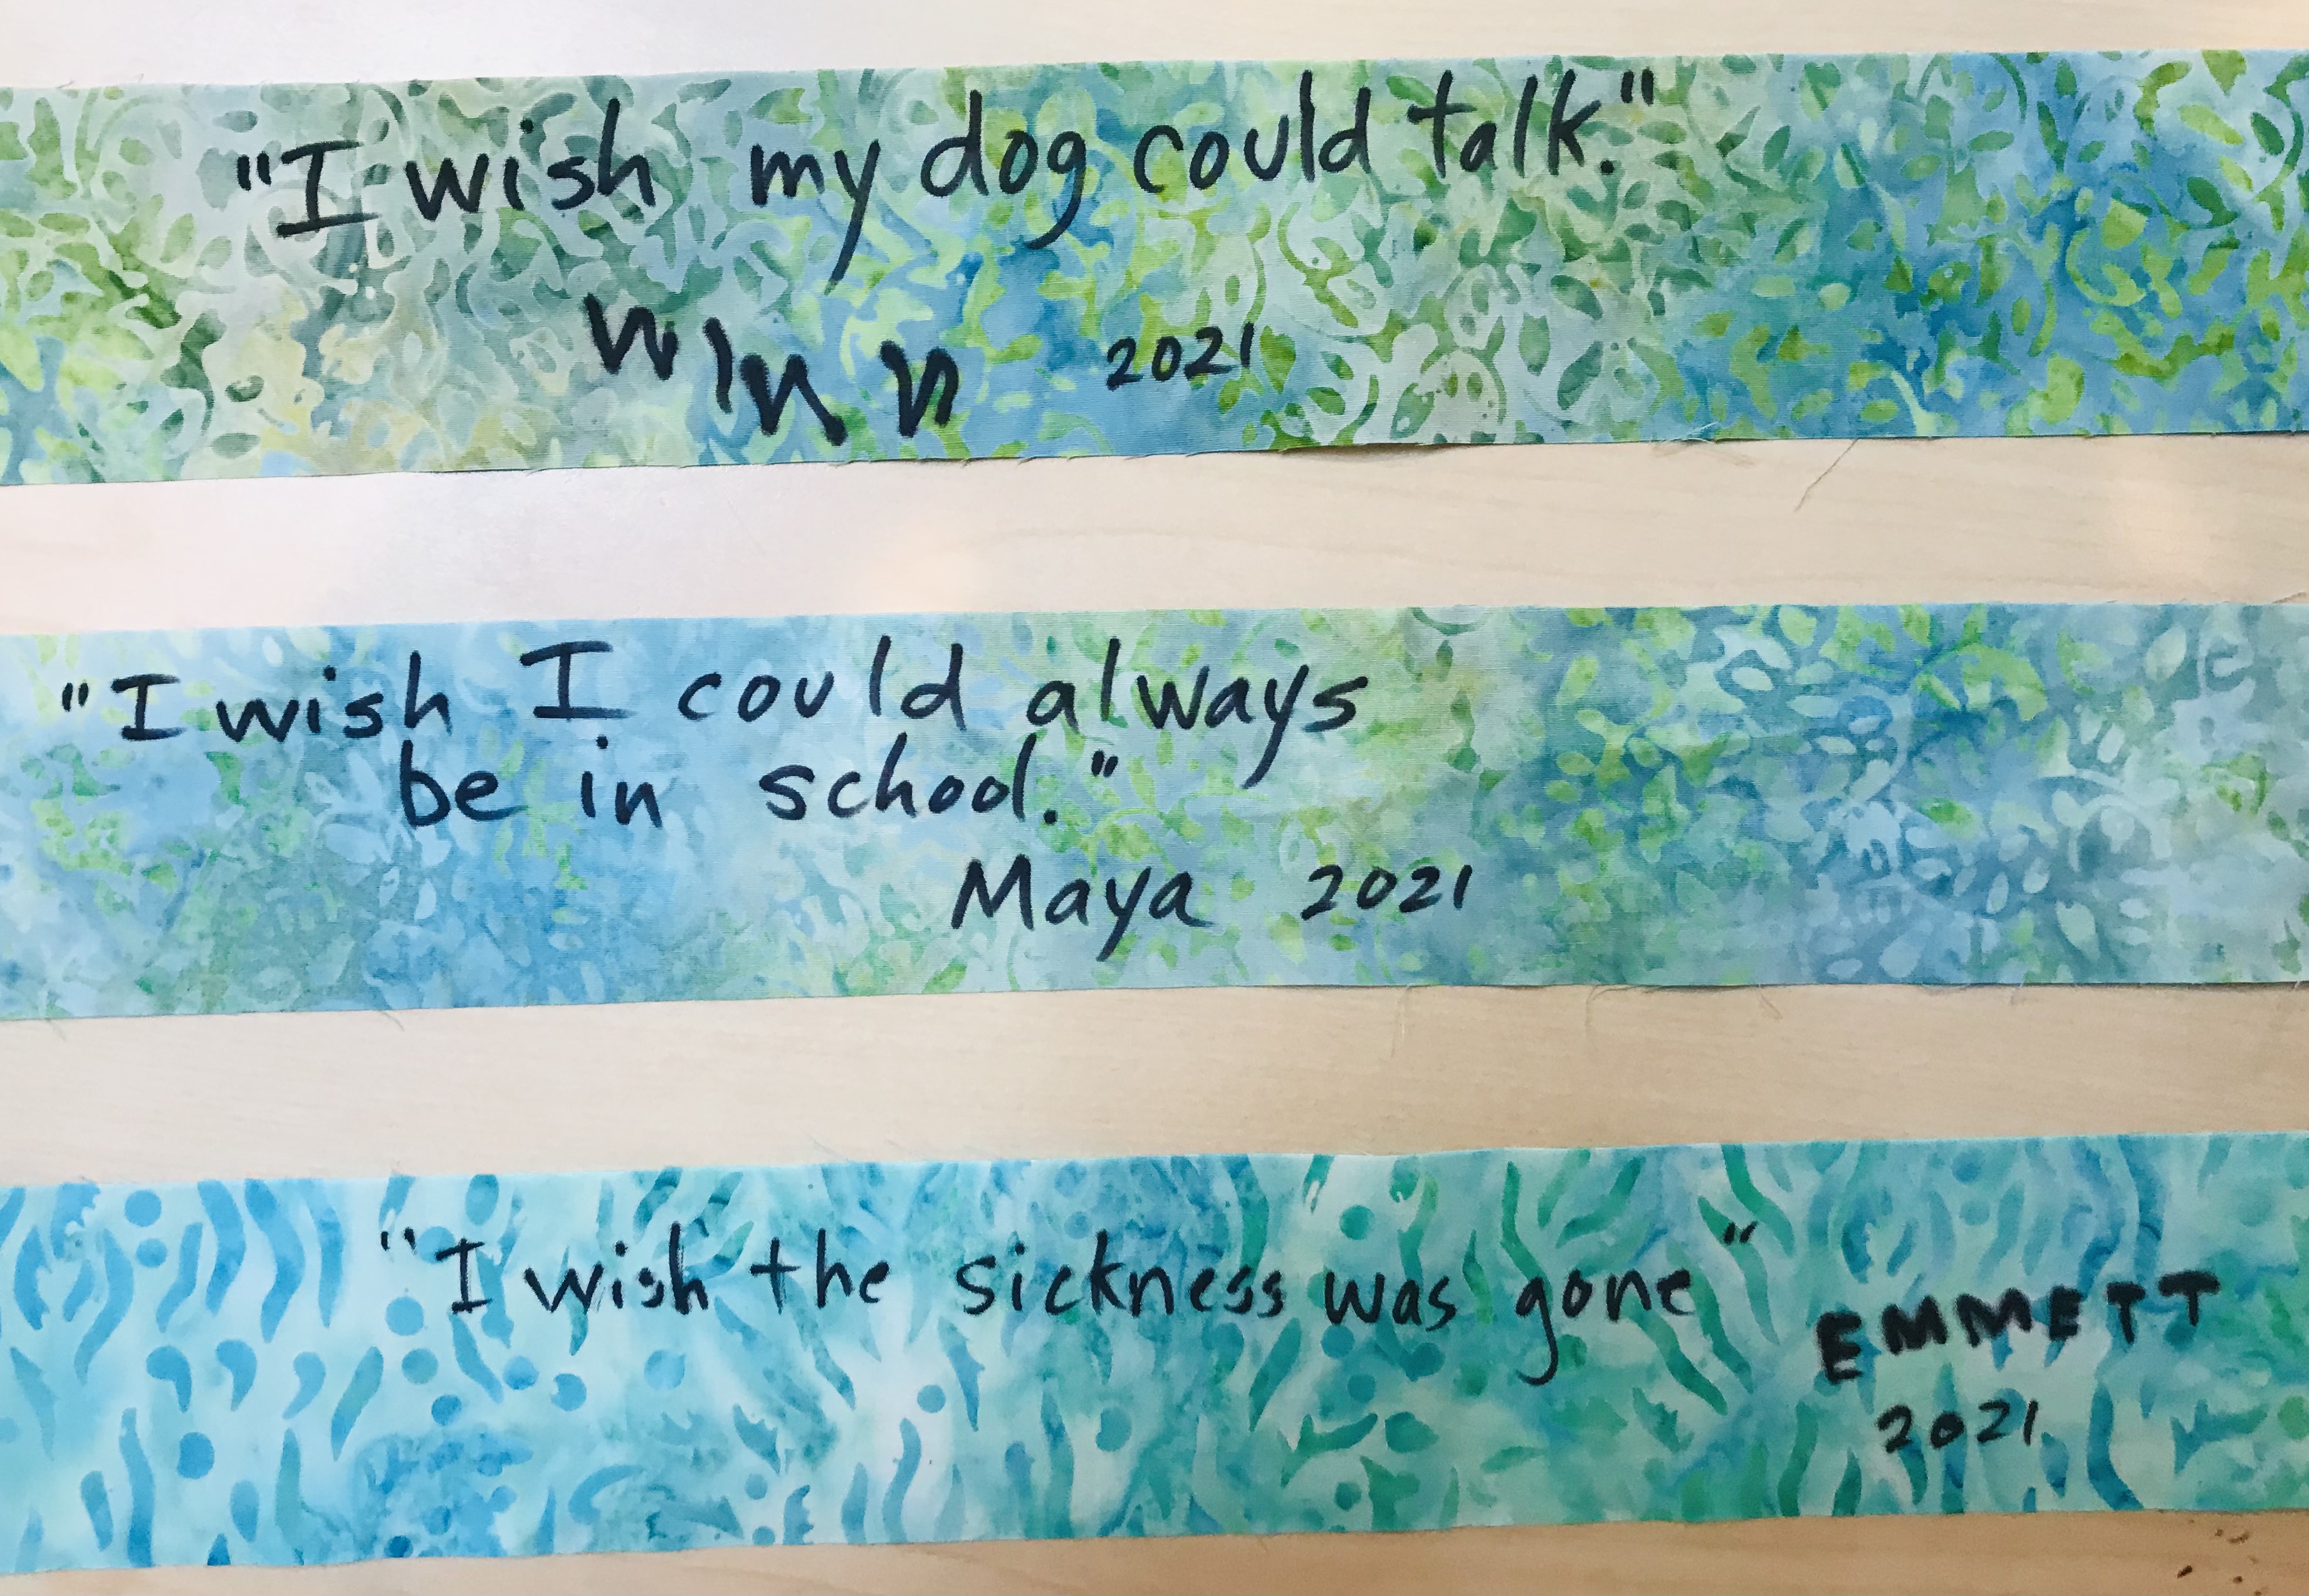 "I wish my dog could talk."
WINN 2021
"I wish I could always
be in school."
Maya 2021
"I wish the sickness was gone"
EMMETT
2021